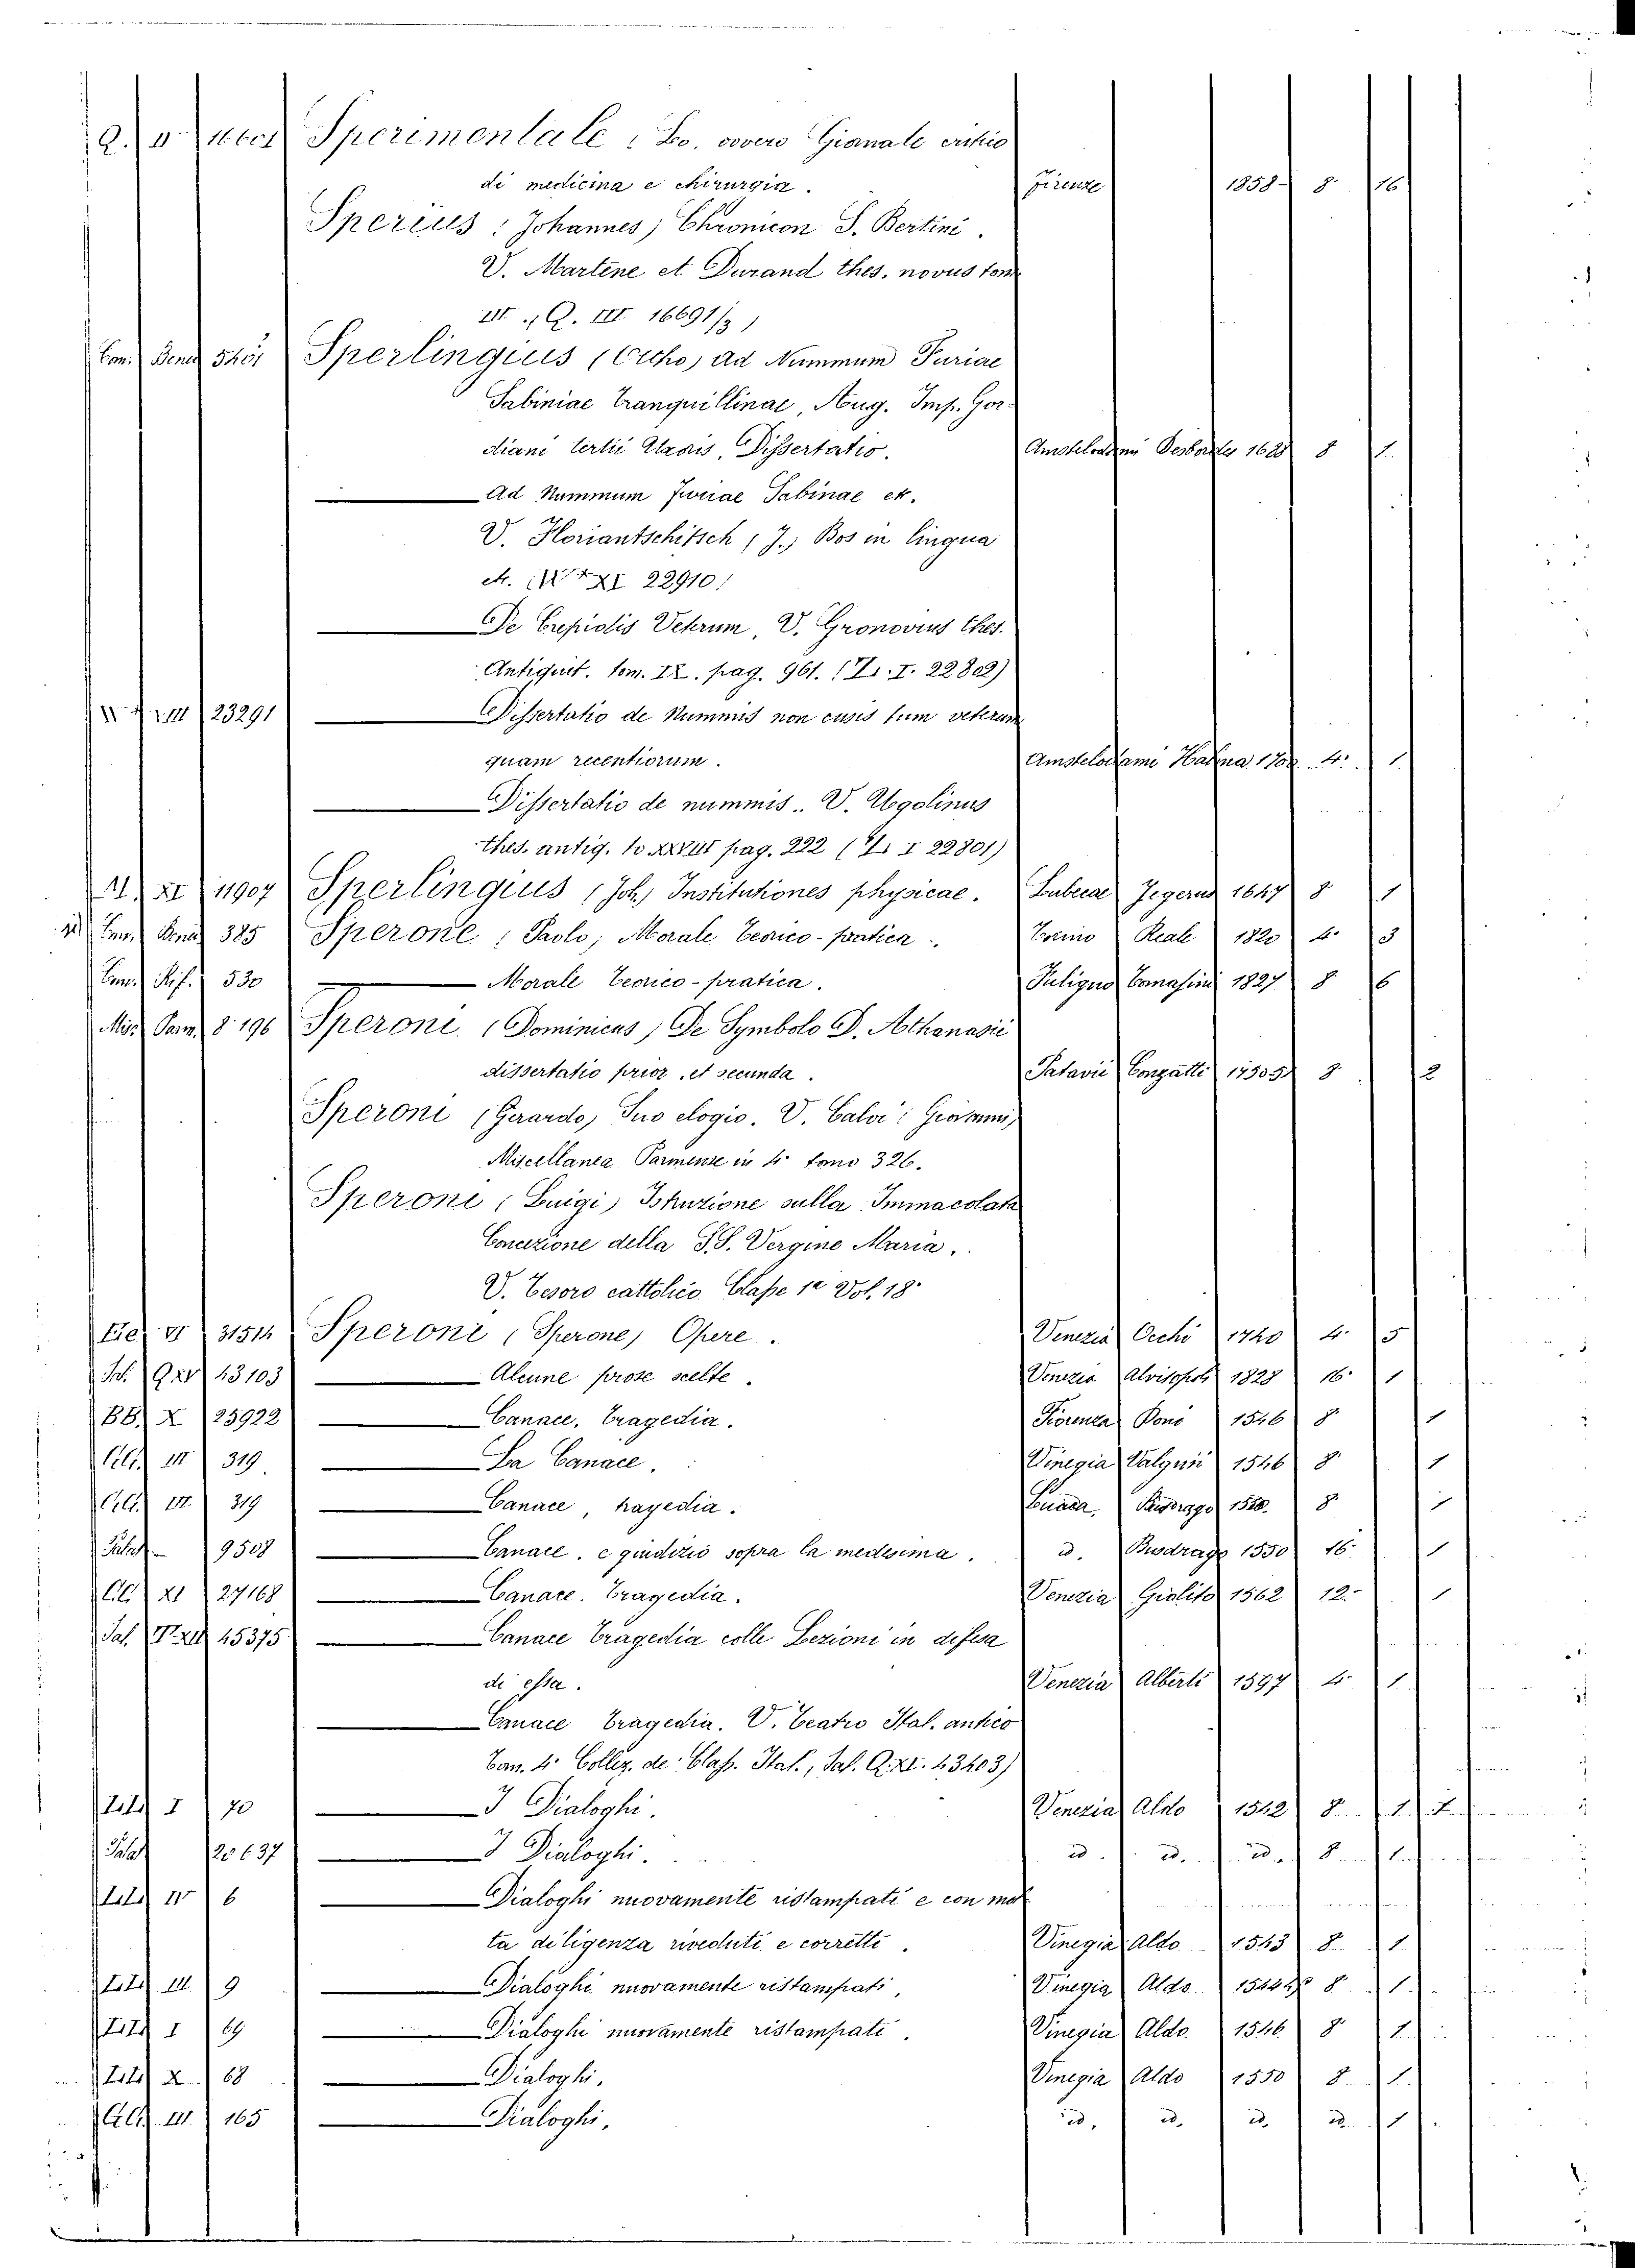 Q. Sperimentale: Lo. ovvero Gionale critico
di medicina e chirurgia. Firenze 1858 8. 16
Sperius (Johannes) Chronicon S. Bertini.
V. Martene et Durand thes. novus tom
III. (Q. III 16691/3)
Sperlingius (Otho) ad Nummum Furiae
Sabiniae Tranquillinae, Aug. Imp. Gor-
diani tertii Dissertatio. Amstelodami Desbordes 1688 8 1.
Ad Nummum Furiae Sabinae et.
V. Floriantschitsch (J.) Bos in lingua
et. XI 22910)
De Crepidis Veterum, V. Gronovius thes.
Antiquit. tom. IX. pag. 961. I. 22802)
23291 Dissertatio de Nummis non cusis tum veterum
quam recentiorum. Amstelodami 4. 1.
Dissertatio de nummis.. V. Ugolinus
thes. antiq. to XXVIII pag. 222 ( I 22801)
XI 11907 Sperlingius (Joh.) Institutiones physicae. Lubecae Jegerus 1647 8 1
385 Sperone (Paolo) Morale teorico-pratica. Torino Reale 1820 4. 3
530 Morale teorico-pratica. Fuligno Tomasini 1827 8 6
8. 196 Speroni (Dominicus) De Symbolo D. Athanasii
dissertatio prior, et secunda. Patavii Conzatti 8 2
Speroni (Gerardo) Suo elogio. V. Calvi (Giovanni)
Miscellanea Parmense in 4 tomo 326.
Speroni (Luigi) Istruzione sulla Immacolata
Concezione della S.S. Vergine Maria.
V. Tesoro cattolico Classe 1a Vol. 18.
31511 Speroni (Sperone) Opere. Venezia Occhi 1740 4. 5
43103 Alcune prose scelte. Venezia Alvisopoli 1828 16. 1
BB. X 25922 Canace, tragedia. Fiorenza Doni 1546 8 1
III 319 La Canace. Vinegia Valgrisi 1546 8. 1
319 Canace, tragedia. Busdrago 8 1
Palat. 9508 Canace, e giudizio sopra la medesima. id. Busdrago 1550 16. 1
XI 27168 Canace. Tragedia. Venezia Giolito 1562 12. 1
45375 Canace Tragedia colle Lezioni in difesa
di essa. Venezia Alberti 1597 4. 1.
Canace Tragedia. V. Teatro Ital. antico
Tom. 4. Collez. de' Class. Ital., Sal. Q. XI. 43403)
I 70 I Dialoghi. Venezia Aldo 1542 8 1
Palat 20637 I Dialoghi. id. id. id. 8 1
6 Dialoghi nuovamente ristampati e con mol
ta diligenza riveduti e corretti. Vinegia Aldo 1543 8. 1
III 9 Dialoghi nuovamente ristampati, Vinegia Aldo 8 1
I 69 Dialoghi nuovamente ristampati. Vinegia Aldo 1546 8 1
X 68 Dialoghi. Vinegia Aldo 1550 8 1.
III. 165 Dialoghi, id, id. id. id. 1